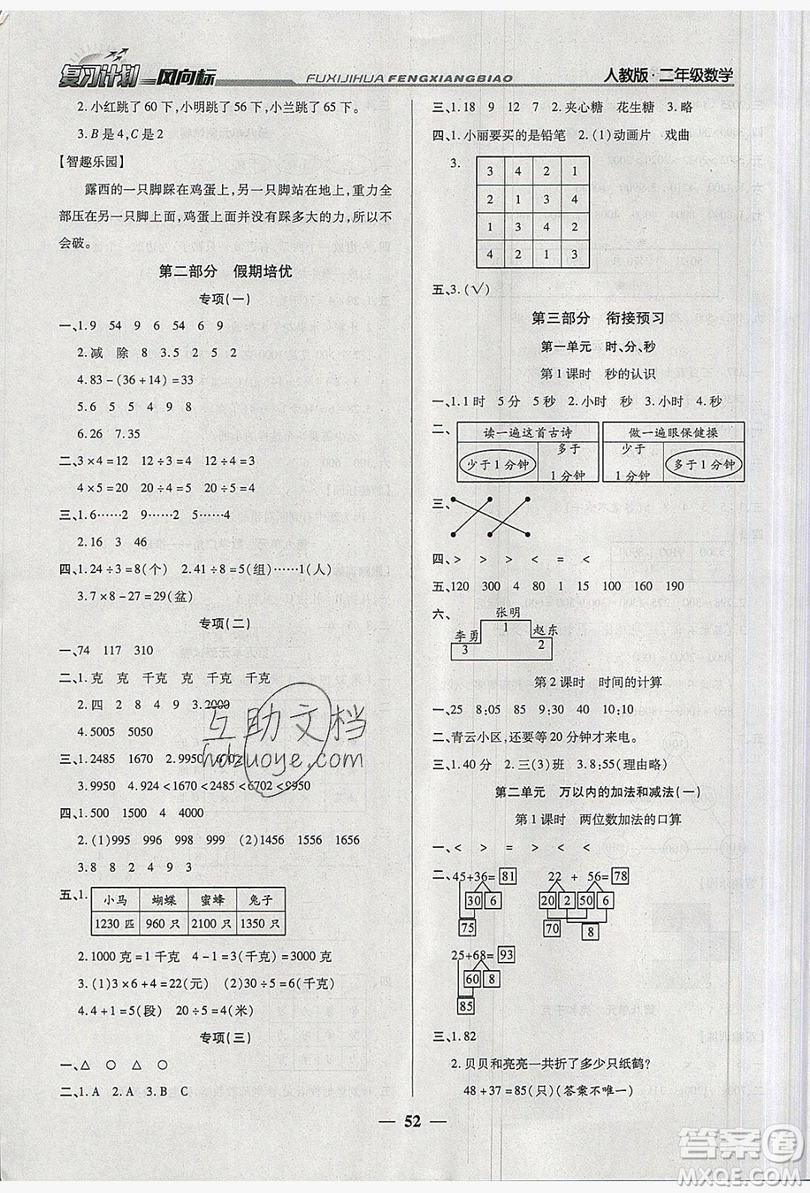 复习计划 风向标 FUXIJIHUA FENGXIANGBIAO 人教版·二年级数学
2.小红跳了 60 下,小明跳了 56 下,小兰跳了 65 下。
3.B 是 4,C 是 2
【智趣乐园】
露西的一只脚踩在鸡蛋上,另一只脚站在地上,重力全
部压在另一只脚上面,鸡蛋上面并没有踩多大的力,所以不
会破。
第二部分 假期培优
专项(一)
一、1.9 54 9 6 54 9 6
2.减 除 8 3.5 2 5 2
4.83-(36+14)=33
5.6 5 5 4 9 8
6.26 7.35
二、3×4=12 12÷3=4 12÷4=3
4×5=20 20÷5=4 20÷4=5
三、1.6……2 9……5 5……4
2.16 3 46
四、1.24÷3=8(个) 2.41÷8=5(组)……1(人)
3.7×8-27=29(盆)
专项(二)
一、74 117 310
二、1.克 克 千克 克 千克 千克
2.四 2 8 4 9 3.2000
4.5005 5050
三、1.2485 1670 2.9950 1670
3.9950 4.2967<2985<6702<9957
四、1.500 1500 4000
2.(1)995 998 999 (2)1556 1656
3.8 8 2 4 9 2 3
五、1. 小马 蝴蝶 蜜蜂 兔子
1230 匹 960 只 2100 只 1350 只
2.1000 克=1 千克 4-1=3(千克)=3000 克
3.(1)3×6+4=22(元) (2)6(千克)
4.4+1=5(段) 20÷5=4(米)
专项(三)
一、△ ○ △ ○
二、1.A 2.A 3.B C
三、1.18 9 12 7 2.夹心糖 花生糖 3.略
四、1.小丽要买的是铅笔 2.(1)动画片 戏曲
3.
3 4 2 1
2 1 3 4
1 2 4 3
4 3 1 2
五、3.(√)
第三部分 衔接预习
第一单元 时、分、秒
第 1 课时 秒的认识
一、1.1 时 5 分 5 秒 2.小时 秒 3.小时
二、 读一遍这首古诗 做一遍眼保健操
少于 1 分钟 多于 1 分钟 少于 1 分钟 多于 1 分钟
三、
四、< > > > < = <
五、120 300 4 80 1 15 100 160 190
六、 张明
李勇 1 赵东
3 2
第 2 课时 时间的计算
一、25 8:05 40 10:10
二、青云小区,还要等 20 分钟才来电。
三、1.40 分 2.三(3)班 3.8:55(理由略)
第二单元 万以内的加法和减法(一)
第 1 课时 两位数加法的口算
一、< = > > < <
二、45+36=81 22+56=78
30 6 20 2 50 6
75
25+68=93
60 8
85
三、1.82
2.贝贝和亮亮一共折了多少只纸鹤?
48+37=85(只)(答案不唯一)
52
互助文档
hdzuoye.com
答案圈
MXQE.COM